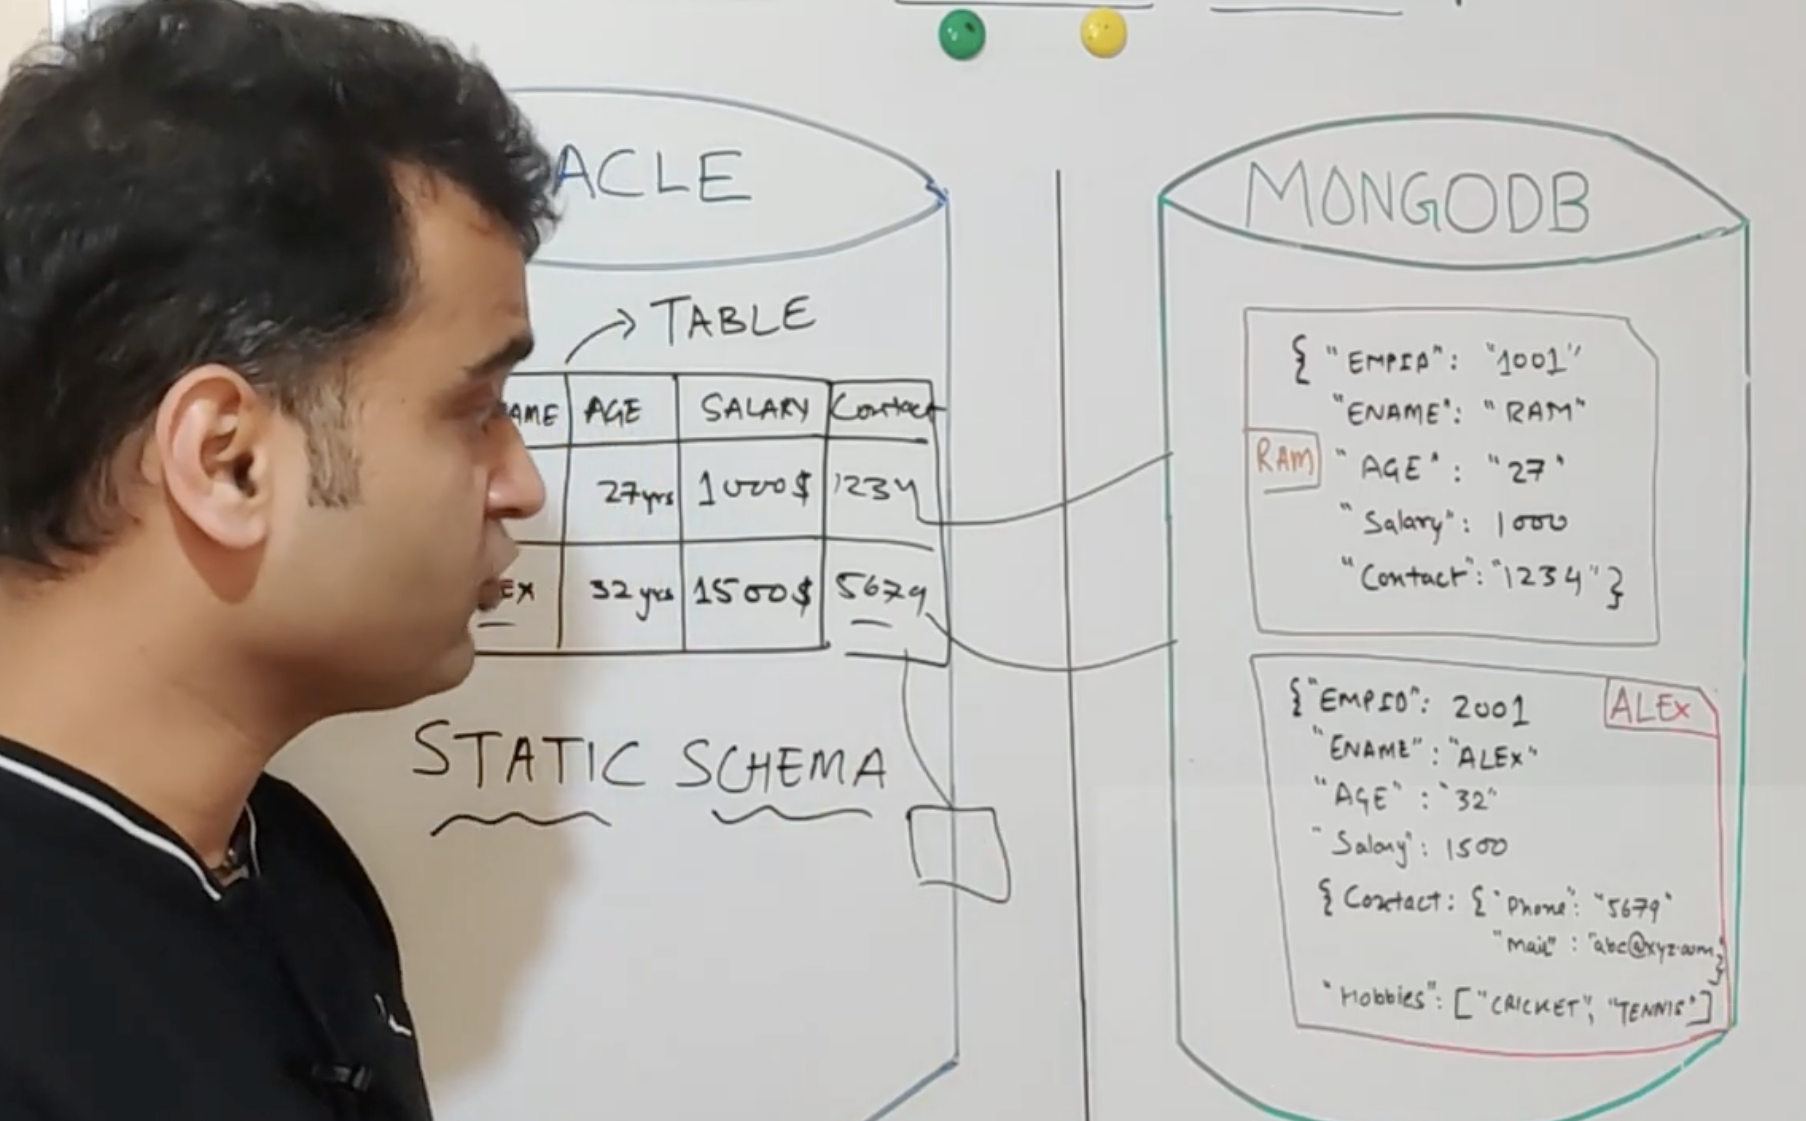 ACLE
TABLE
AME AGE SALARY Contact
27yrs 1000$ 1234
EX 32yrs 1500$ 5679
STATIC SCHEMA
MONGODB
{ "EMPID": "1001"
"ENAME": "RAM"
RAM
"AGE": "27"
"Salary": 1000
"Contact": "1234"}
{"EMPID": 2001
ALEX
"ENAME": "ALEX"
"AGE": "32"
"Salary": 1500
{Contact: {"Phone": "5679"
"Mail": "abc@xyz.com
}
"Hobbies": ["CRICKET", "TENNIS"]